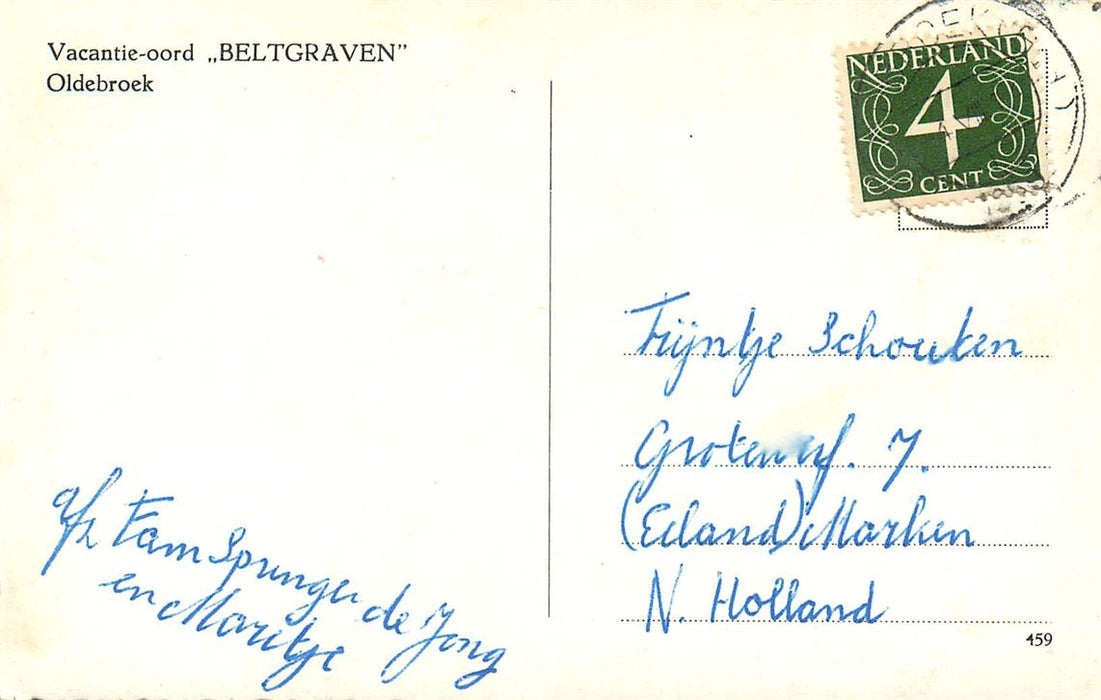 Vacantie-oord „BELTGRAVEN”
Oldebroek
NEDERLAND
4
CENT
Trijntje Schouten
Grotewerf. 7.
(Eiland) Marken
N. Holland
afz Fam Sprunger de Jong
en Marritje
459